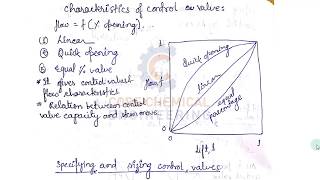 Characteristics of control valves
flow = f (% opening)
(1) Linear
(2) Quick opening
(3) Equal % valve
* It gives control valve's
flow characteristics
* Relation between control
valve capacity and stem move.
1
flow, f
0
0
lift, l
1
Quick opening
Linear
equal
percentage
CHEMICAL
ENGINEERING
Specifying and sizing control valves